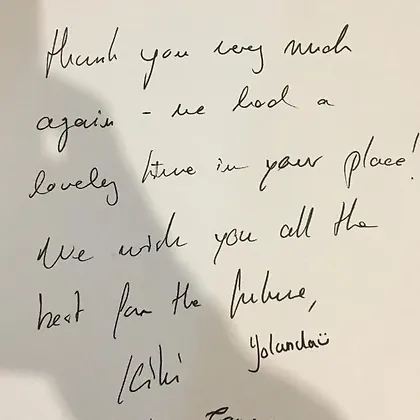 thank you very much
again - we had a
lovely time in your place!
We wish you all the
best for the future,
Kiki Yolanda ü